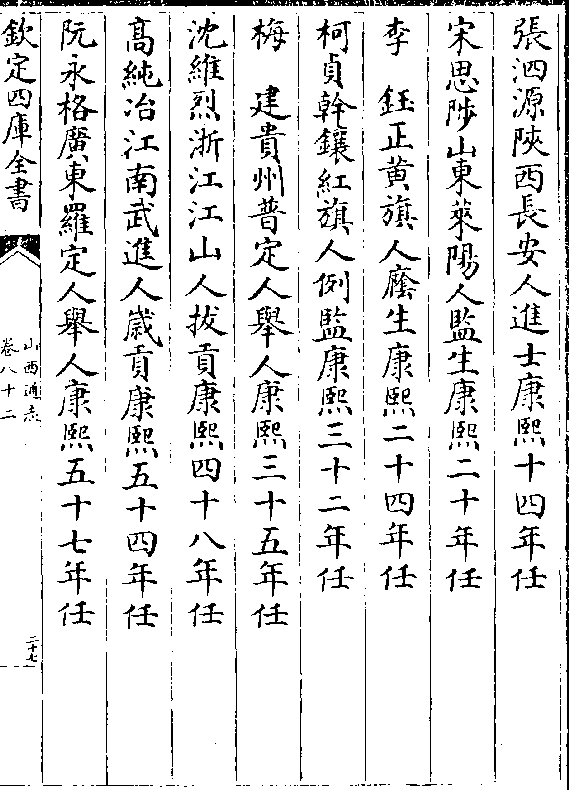 張泗源陜西長安人進士康熙十四年任
宋思陟山東萊陽人監生康熙二十年任
李　鈺正黄旗人廕生康熙二十四年任
柯貞幹鑲紅旗人例監康熙三十二年任
梅　建貴州普定人舉人康熙三十五年任
沈維烈浙江江山人拔貢康熙四十八年任
髙純冶江南武進人歲貢康熙五十四年任
阮永格廣東羅定人舉人康熙五十七年任
欽定四庫全書
山西通志
卷八十二
二十七